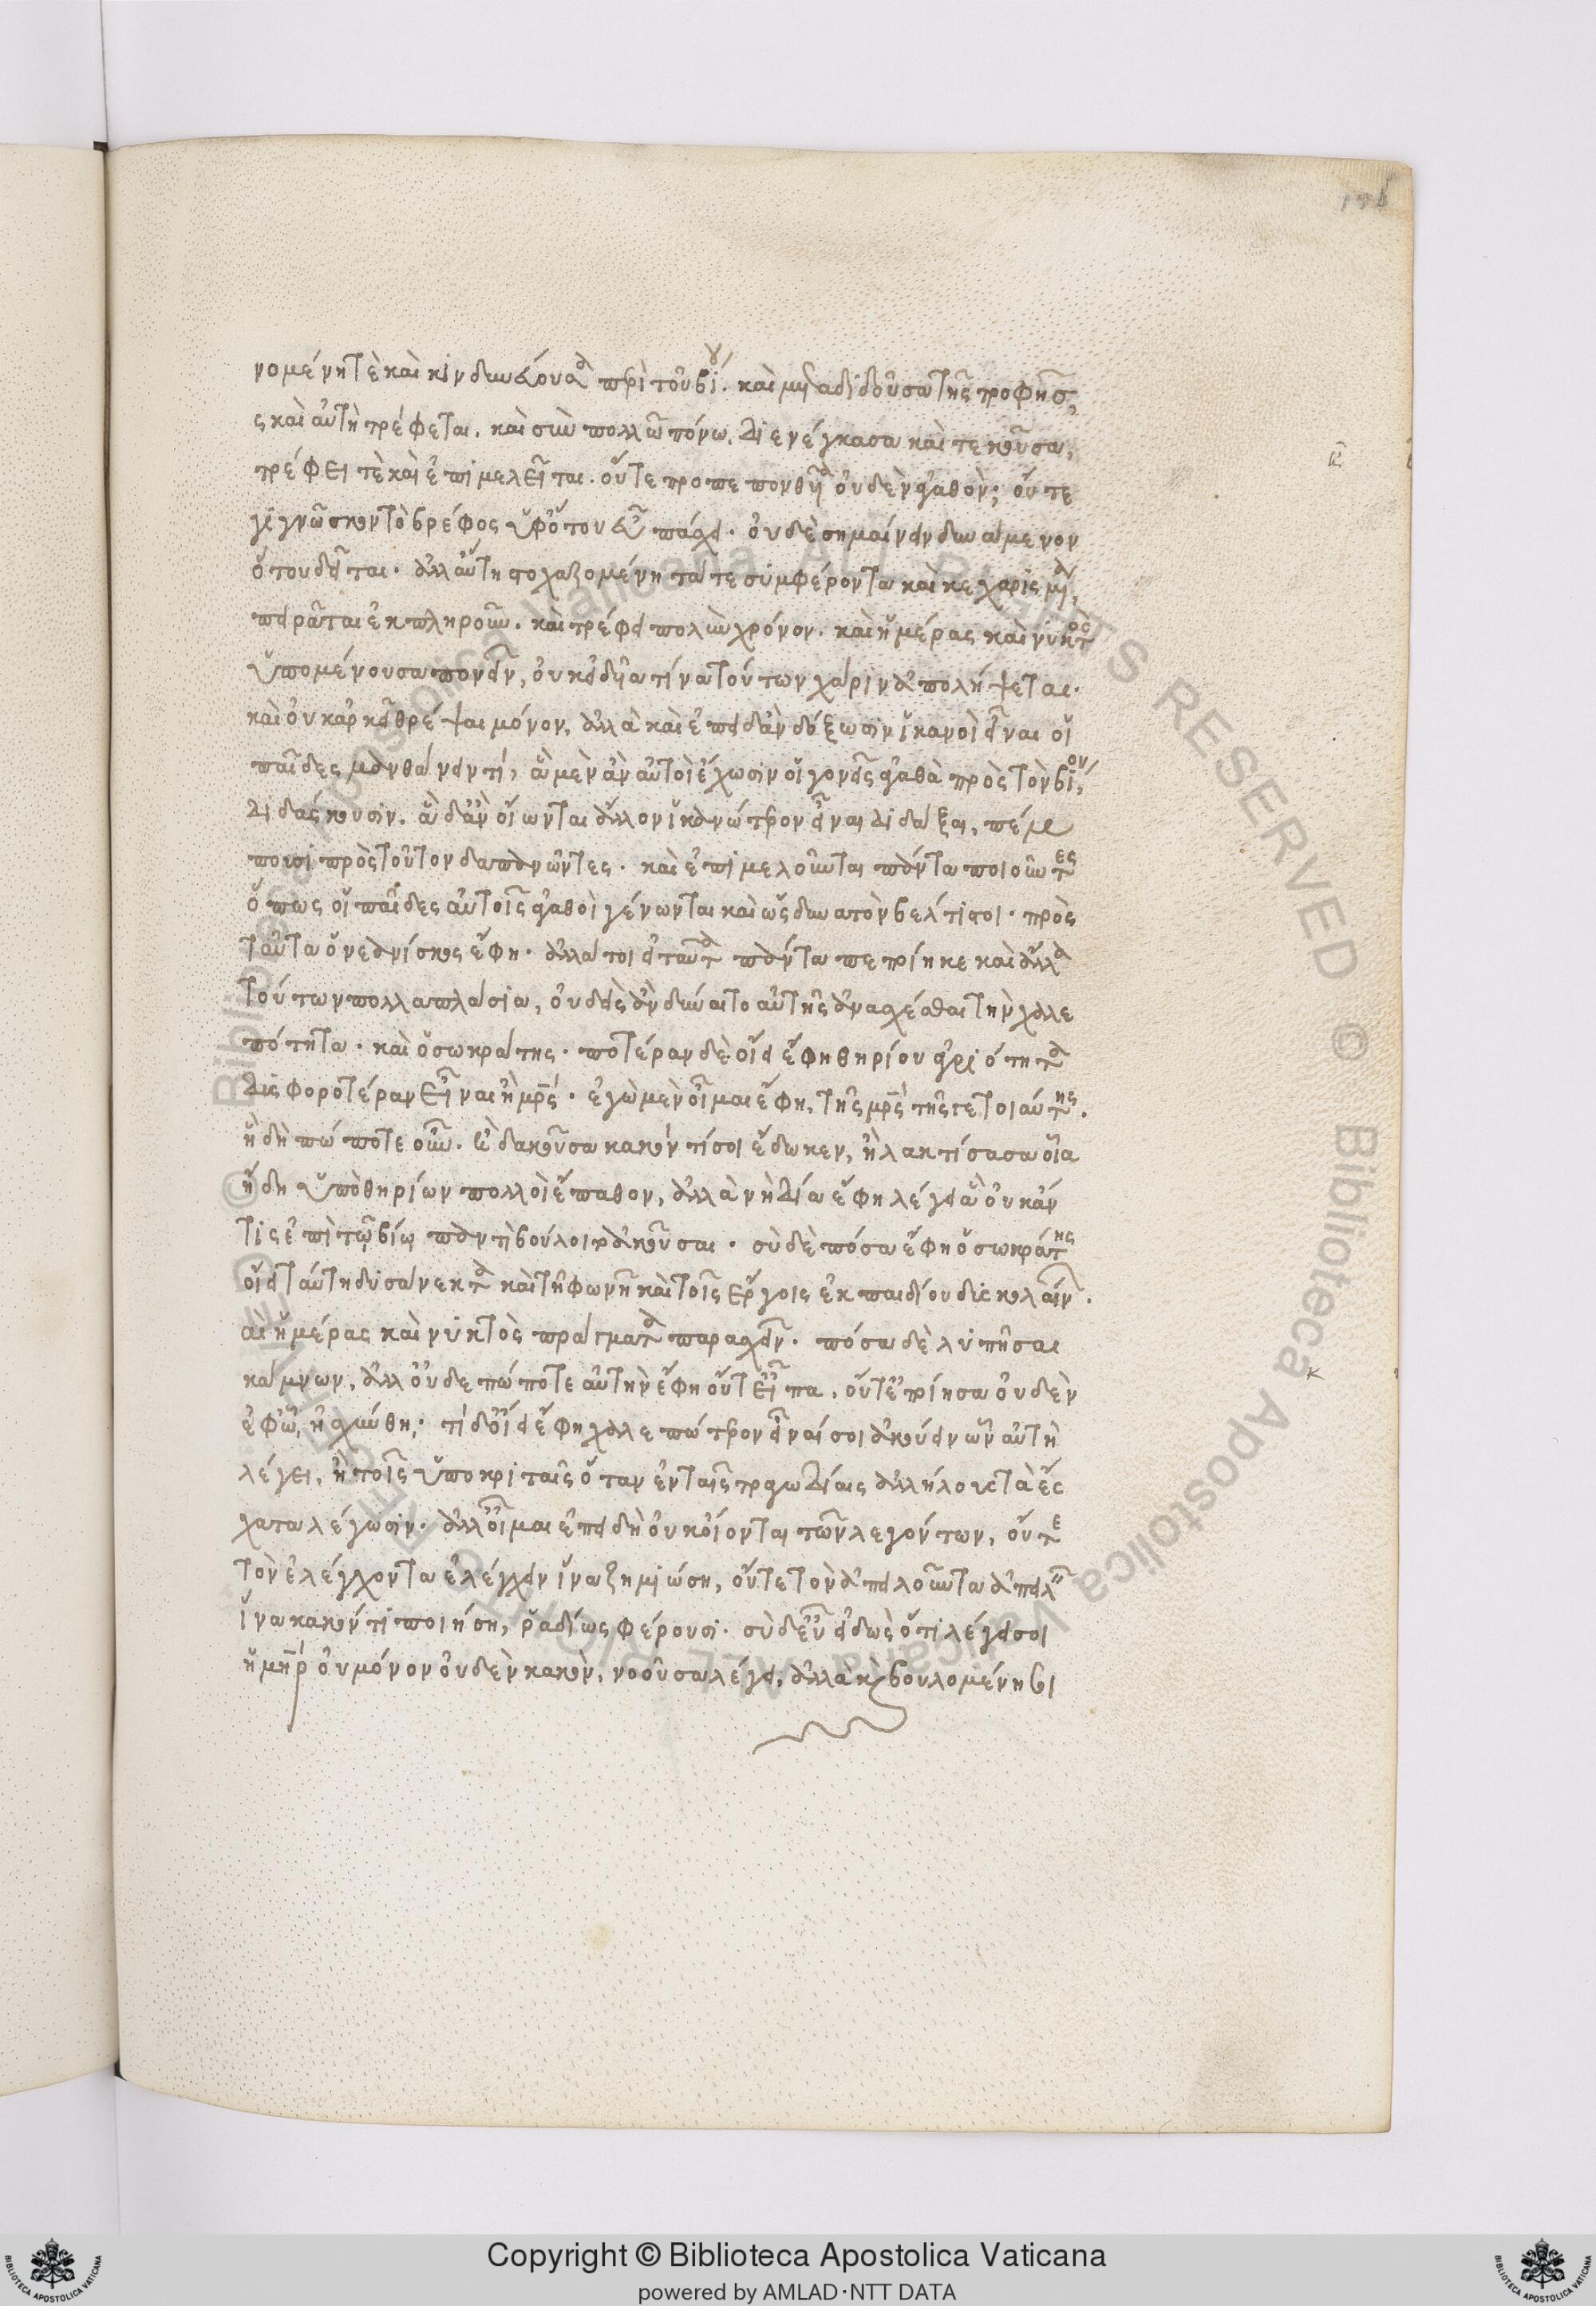 νομένη τὲ καὶ κινδυνεύουσα περὶ τοῦ βίου. καὶ μεταδιδοῦσα τῆς τροφῆς ᾗ
ς καὶ αὐτὴ τρέφεται. καὶ σὺν πολλῶ πόνω, διενέγκασα καὶ τεκοῦσα,
τρέφει τὲ καὶ ἐπιμελεῖται. οὔτε προπεπονθυῖα οὐδὲν ἀγαθὸν; οὔτε
γιγνῶσκον τὸ βρέφος ὑφ' ὅτου εὖ πάσχει. οὐδὲ σημαίνειν δυνάμενον
ὅτου δεῖται. ἀλλ' αὐτὴ στοχαζομένη τά τε συμφέροντα καὶ κεχαρισμένα,
πειρᾶται ἐκπληροῦν. καὶ τρέφει πολὺν χρόνον. καὶ ἡμέρας καὶ νυκτὸς
ὑπομένουσα πονεῖν, οὐκ εἰδυῖα τίνα τούτων χάριν ἀπολήψεται.
καὶ οὐκ ἀρκεῖ θρέψαι μόνον, ἀλλὰ καὶ ἐπειδὰν δόξωσιν ἱκανοὶ εἶναι οἱ
παῖδες μανθάνειν τί, ἃ μὲν ἂν αὐτοὶ ἔχωσιν οἱ γονεῖς ἀγαθὰ πρὸς τὸν βίον,
διδάσκουσιν. ἃ δ' ἂν οἴωνται ἄλλον ἱκανώτερον εἶναι διδάξαι, πέμ
πουσι πρὸς τοῦτον δαπανῶντες. καὶ ἐπιμελοῦνται πάντα ποιοῦντες
ὅπως οἱ παῖδες αὐτοῖς ἀγαθοὶ γένωνται καὶ ὡς δυνατὸν βέλτιστοι. πρὸς
ταῦτα ὁ νεανίσκος ἔφη. ἀλλά τοι εἰ ταῦτα πάντα πεποίηκε καὶ ἄλλα
τούτων πολλαπλάσια, οὐδεὶς ἂν δύναιτο αὐτῆς ἀνασχέσθαι τὴν χαλε
πότητα. καὶ ὁ σωκράτης. ποτέραν δὲ οἴει ἔφη θηρίου ἀγριότητα
δισφοροτέραν εἶναι ἢ μρς. ἐγὼ μὲν οἶμαι ἔφη, τῆς μρς τῆς γε τοιαύτης.
ἤδη πώποτε οὖν. ἢ δακοῦσα κακόν τί σοι ἔδωκεν, ἢ λακτίσασα οἷα
ἤδη ὑπὸ θηρίων πολλοὶ ἔπαθον, ἀλλὰ νὴ δία ἔφη λέγει ἃ οὐκ ἄν
τις ἐπὶ τῷ βίῳ παντὶ βούλοιτο ἀκοῦσαι. σὺ δὲ πόσα ἔφη ὁ σωκράτης
οἴει ταύτῃ δυσάνεκτα καὶ τῆ φωνῆ καὶ τοῖς ἔργοις ἐκ παιδίου δισκολαίνων.
αὶ ἡμέρας καὶ νυκτὸς πράγματα παρασχεῖν. πόσα δὲ λυπῆσαι
κάμνων, ἀλλ' οὐδεπώποτε αὐτὴν ἔφη οὔτ' εἶπα, οὔτ' ἐποίησα οὐδὲν
ἐφ' ᾧ, ᾐσχύνθη. τί δ' οἴει ἔφη χαλεπώτερον εἶναί σοι ἀκούειν ὧν αὐτὴ
λέγει, ἢ τοῖς ὑποκριταῖς ὅταν ἐν ταῖς τραγωδίαις ἀλλήλους τὰ ἔς
χατα λέγωσιν. ἀλλ' οἶμαι ἐπειδὴ οὐκ οἴονται τῶν λεγόντων, οὔτε
τὸν ἐλέγχοντα ἐλέγχειν ἵνα ζημιώση, οὔτε τὸν ἀπειλοῦντα ἀπειλεῖν
ἵνα κακόν τι ποιήση, ῥαδίως φέρουσι. σὺ δ' εὖ εἰδὼς ὅτι λέγει σοι
ἡ μηρ οὐ μόνον οὐδὲν κακὸν, νοοῦσα λέγει, ἀλλὰ κὶ βουλομένη σι